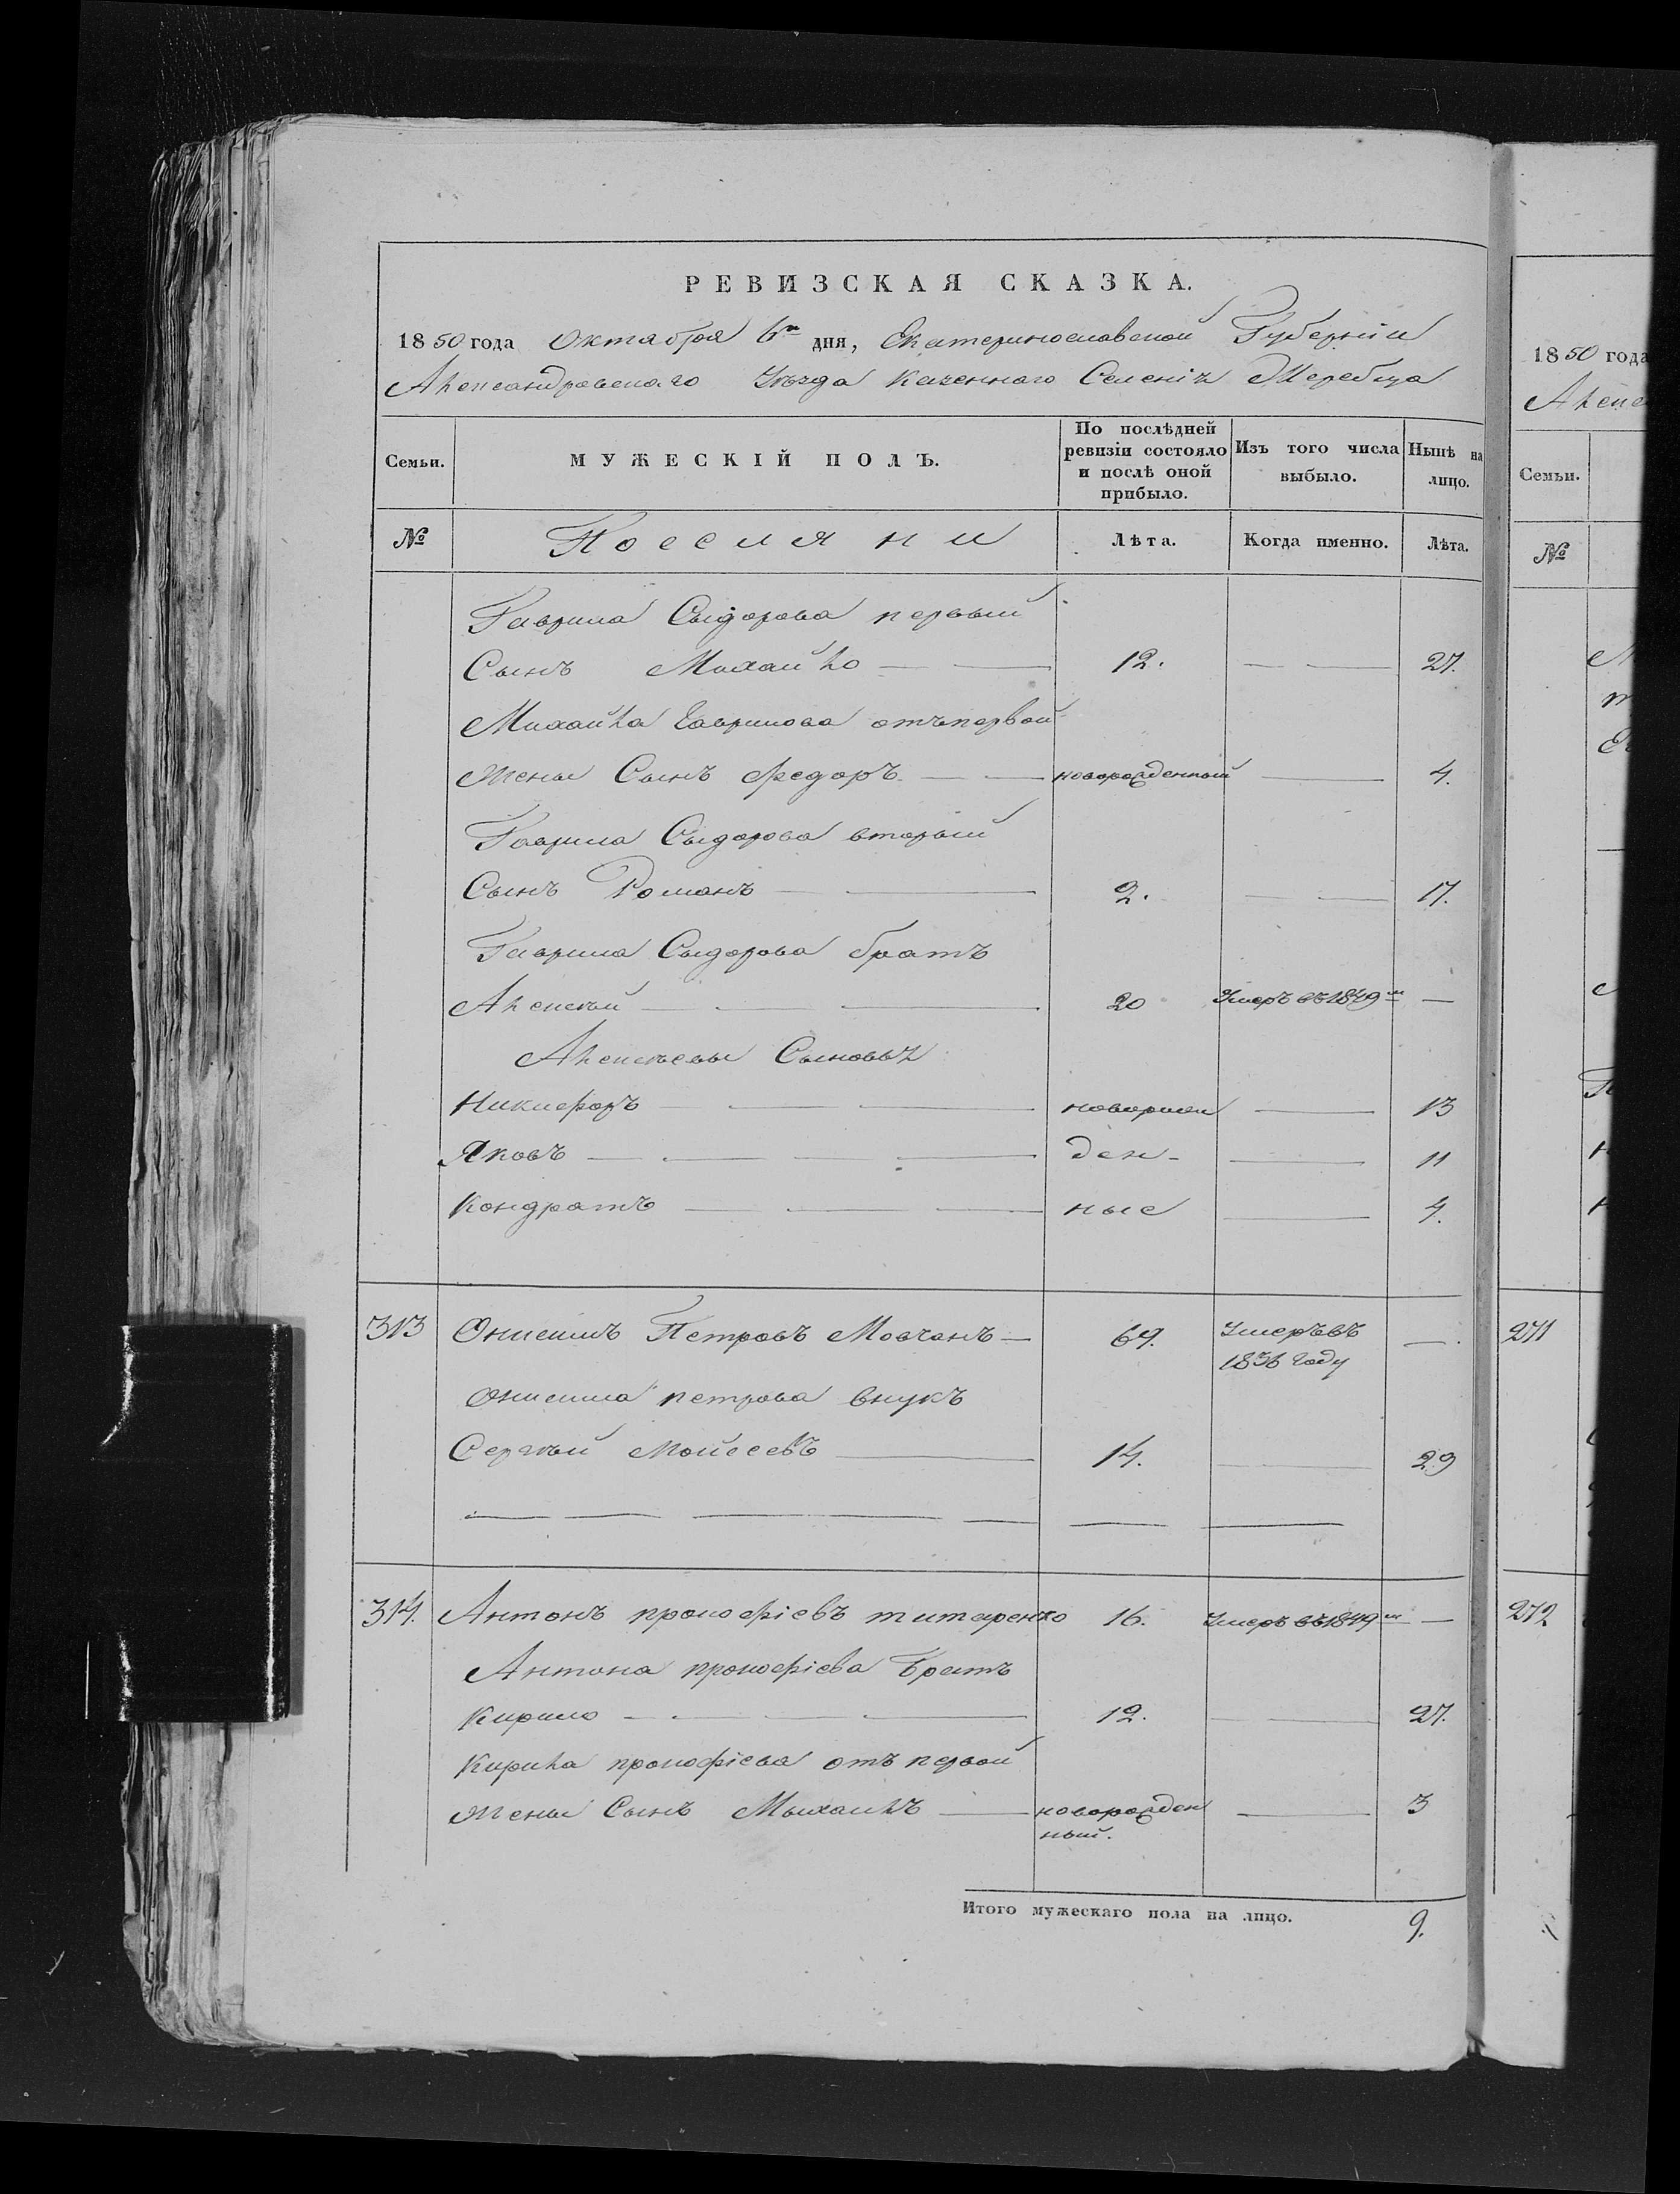 РЕВИЗСКАЯ СКАЗКА.
1850 года Октября 6го дня, Екатеринославской Губерніи
Александровскаго Уѣзда Казеннаго Селенія Жеребца
Семьи. МУЖЕСКІЙ ПОЛЪ. По послѣдней ревизіи состояло и послѣ оной прибыло. Изъ того числа выбыло. Нынѣ на лицо.
№ Поселяни Лѣта. Когда именно. Лѣта.
Гаврила Сыдорова первый
Сынъ Михайло 12. 27.
Михайла Гаврилова отъ первой
жены Сынъ Федоръ новорожденный 4.
Гаврила Сыдорова вторый
Сынъ Романъ 2. 17.
Гаврила Сыдорова братъ
Алексѣй 20 Умеръ въ 1849м —
Алексѣевы Сыновья
Никифоръ новорож 13
Яковъ ден- 11
Кондратъ ные 4.
313 Онисимъ Петровъ Мовчанъ 69. Умеръ въ 1836 году —
Онисима петрова внукъ
Сергѣй Мойсеевъ 14. 29
314. Антонъ прокофіевъ титаренко 16. Умеръ въ 1849м —
Антона прокофіева Братъ
Кирило 12. 27.
Кирила прокофіева отъ первой
жены Сынъ Мыхаилъ новорожден ный. 3
Итого мужескаго пола на лицо. 9.
1850 года
Алекс
Семьи.
№
271
272